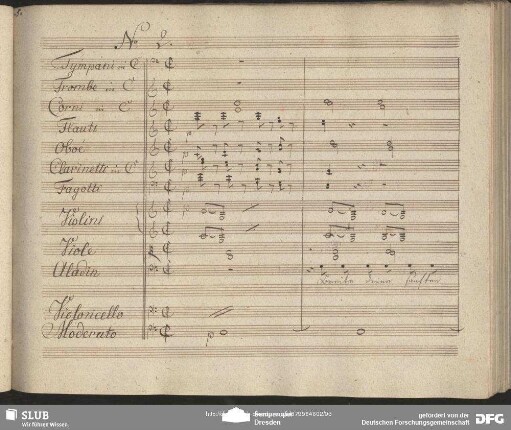 No 2.
Tympani in C
Trombe in C
Corni in C
Flauti
Oboe
Clarinetti in C
Fagotti
Violini
Viole
Aladin
Violoncello
Moderato
SLUB
Wir führen Wissen.
Dresden
gefördert von der
Deutschen Forschungsgemeinschaft
DFG